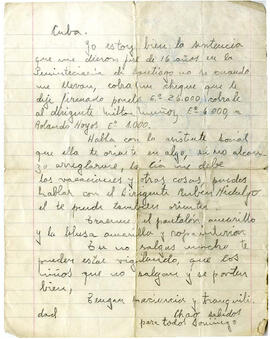 Cuba.
Yo estoy bien, la sentencia
que me dieron fue de 16 años en la
Penintecieria de Santiago no se cuando
me llevan, cobra un cheque que te
deje firmado por los E° 26.000, cobrale
al dirigente Milton Muñoz E° 6.000, a
Rolando Hoyos E° 1.000.
Habla con la sistente social
que ella te oriente en algo, si no alcan
zo arreglarme, la Cia me debe
las vacaciones y otras cosas, puedes
hablar con el dirigente Rubén Hidalgo
el te puede también orientar
Traeme el pantalón amarillo
y la blusa amarilla y ropa interior.
Tu no salgas mucho te
pueden estar vigilando, que los
niños que no salgan y se porten
bien,
Tengan paciencia y tranquili-
dad Chao saludos
para todos Domingo